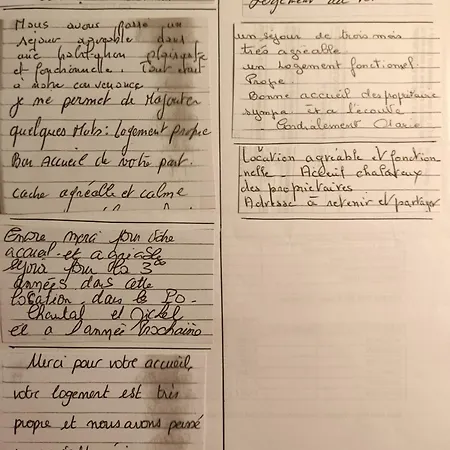 Nous avons passé un
séjour agréable dans
une habitation plaisante
et fonctionnelle. Tout était
à notre convenance
je me permet de Rajouter
quelques Mots: Logement propre
Bon Accueil de votre part.
cadre agréable et calme
Encore merci pour votre
accueil et agréable
séjour pour la 3
années dans cette
location dans le
Chantal et Michel
et a l'année prochaine
Merci pour votre accueil,
votre logement est très
propre et nous avons passé
Logement
un séjour de trois mois
très agréable
un Logement fonctionel
Propre
Bonne accueil des propriétaire
sympa à l'écoute
Cordialement
Location agréable et fonction
nelle. Acceuil chaleureux
des propriétaires
Adresse à retenir et partager